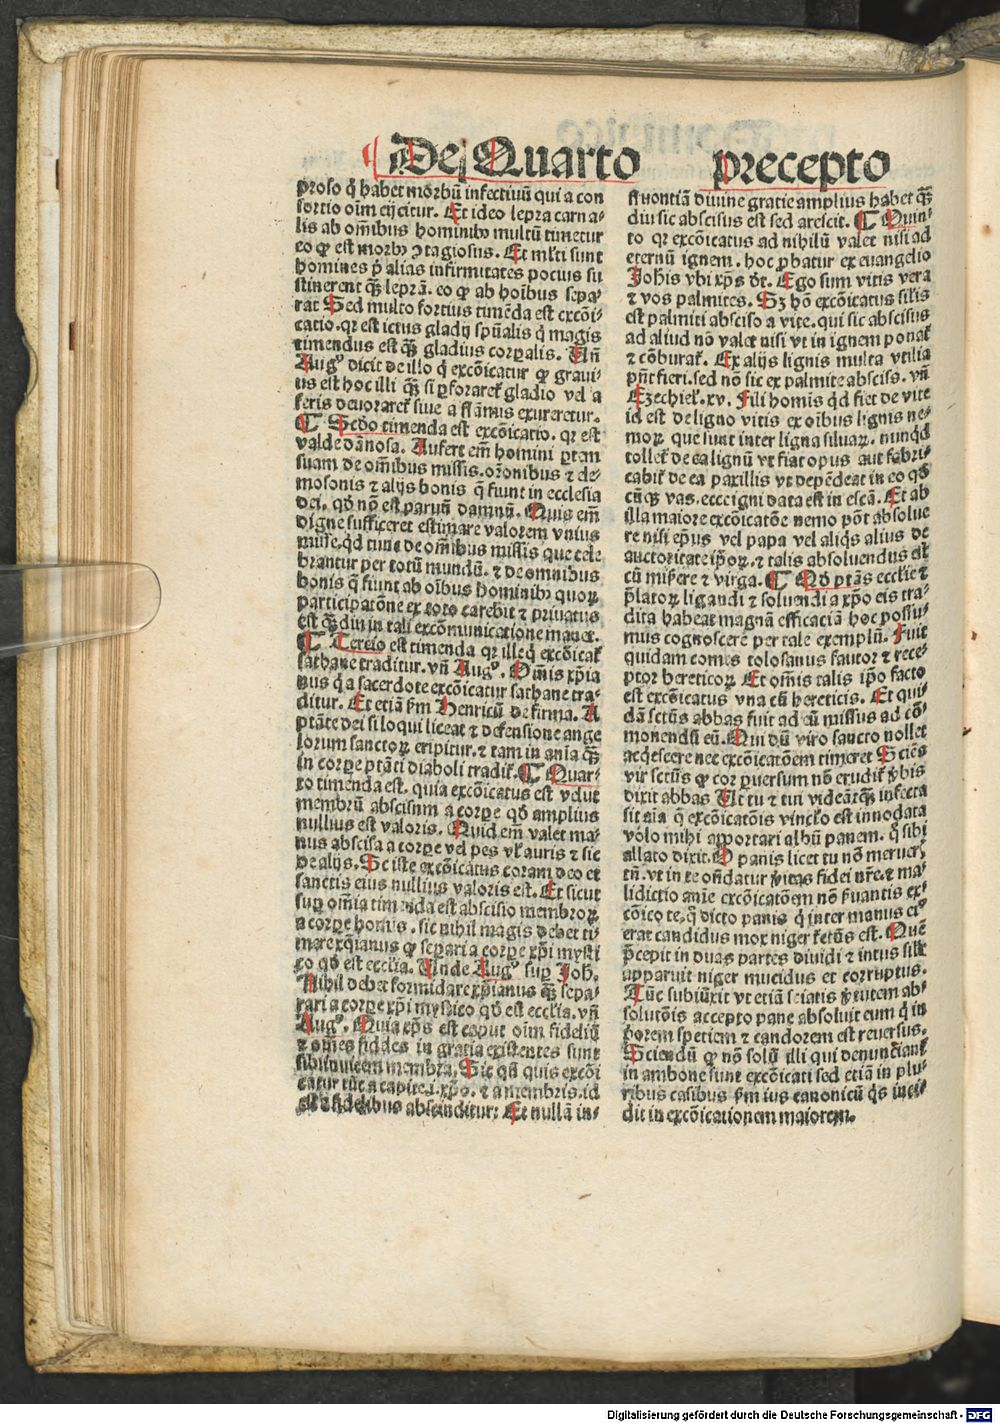 De Quarto precepto
proso q̄ habet morbū infectiuū qui a con
sortio oīm eijcitur. Et ideo lepra carna-
lis ab om̄ibus hominibꝰ multū timetur
eo ꝙ est morbꝰ ↄtagiosus. Et ml'ti sunt
homines p̄ alias infirmitates pocius su
stinerent q̄ꝫ leprā. eo ꝙ ab hoībus sepa-
rat Sed multo fortius timēda est excōi-
catio. qꝛ est ictus gladij spūalis q̄ magis
timendus est q̄ꝫ gladius corꝑalis. Un̄
Augꝰ dicit de illo q̄ excōicatur ꝙ graui-
us est hoc illi q̄ꝫ si ꝑforaret̄ gladio vel a
feris deuoraret̄ siue a flāmis exureretur.
¶ Scd̓o timenda est excōicatio. qꝛ est
valde dānosa. Aufert em̄ homini ꝑtem
suam de om̄ibus missis. or̄onibus ⁊ ele-
mosonis ⁊ alijs bonis q̄ fiunt in ecclesia
dei. qd̓ nō est paruū damnū. Quis em̄
digne sufficeret estimare valorem vnius
misse. qd tunc de om̄ibus missis que cele
brantur per totū mundū. ⁊ de omnibus
bonis q̄ fiunt ab oībus hominibꝰ quoꝝ
participatōne ex toto carebit ⁊ priuatus
est q̄ꝫdiu in tali excōmunicatione manet.
¶ Tercio est timenda qꝛ ille q̄ excōicat̄
sathane traditur. vn̄ Augꝰ. Om̄is xp̄ia
nus q̄ a sacerdote excōicatur sathane tra-
ditur. Et etiā ẜm Henricū de firma. A
ptāte dei si loqui liceat ⁊ defensione ange
lorum sanctoꝝ eripitur. ⁊ tam in aīa q̄ꝫ
in corꝑe ptāti diaboli tradit̄. ¶ Quar-
to timenda est. quia excōicatus est velut
membrū abscisum a corꝑe qd̓ amplius
nullius est valoris. Quid em̄ valet ma-
nus abscisa a corꝑe vel pes vl̓ auris ⁊ sic
de alijs. Sic iste excōicatus coram deo et
sanctis eius nullius valoris est. Et sicut
suꝑ om̄ia timenda est abscisio membroꝝ
a corꝑe homīs. sic nihil magis debet ti-
mere xp̄ianus ꝙ seperari a corꝑe xp̄i mysti
co qd̓ est ecclīa. Unde Augꝰ suꝑ Joh.
Nihil debet formidare xp̄ianus q̄ꝫ sepa-
rari a corꝑe xp̄i mystico qd̓ est ecclīa. vn̄
Augꝰ. Quia xp̄s est caput oīm fideliū
⁊ om̄es fideles in gratia existentes sunt
sibiinuicem membra. Sic qn̄ quis excōi
catur tūc a capite .i. xp̄o. ⁊ a membris. id
est a fidelibus abscinditur: Et nullā in-
fluentiā diuine gratie amplius habet q̄ꝫ
diu sic abscisus est sed arescit. ¶ Quin-
to qꝛ excōicatus ad nihilū valet nisi ad
eternū ignem. hoc ꝓbatur ex euangelio
Johis vbi xp̄s dt̄. Ego sum vitis vera
⁊ vos palmites. Sꝫ hō excōicatus sil̓is
est palmiti absciso a vite. qui sic abscisus
ad aliud nō valet nisi vt in ignem ponat̄
⁊ cōburat̄. Ex alijs lignis multa vtilia
pn̄t fieri. sed nō sic ex palmite absciss. vn̄
Ezechiel. xv. Fili homīs qd̓ fiet de vite
id est de ligno vitis ex oībus lignis ne-
moꝝ que sunt inter ligna siluaꝝ. nunqd̓
tollet̄ de ea lignū vt fiat opus aut fabri-
cabit̄ de ea paxillis vt depēdeat in eo qd̓
cūqꝫ vas. ecce igni data est in escā. Et ab
illa maiore excōicatōe nemo pōt absolue
re nisi ep̄us vel papa vel aliqs alius de
auctoritate ip̄oꝝ. ⁊ talis absoluendus est
cū mis̄ere ⁊ virga. ¶ Qd̓ ptās ecclīe ⁊
p̄latoꝝ ligandi ⁊ soluendi a xp̄o eis tra-
dita habeat magnā efficaciā hoc possu-
mus cognoscere per tale exemplū. Fuit
quidam comes tolosanus fautor ⁊ rece-
ptor hereticoꝝ. Et om̄is talis ip̄o facto
est excōicatus vna cū hereticis. Et qui-
dā sctūs abbas fuit ad eū missus ad cō-
monendū eū. Qui dū viro sancto nollet
acq̄escere nec excōicatōem timeret Sciēs
vir sctūs ꝙ cor ꝑuersum nō erudit̄ v̓bis
dixit abbas Ut tu ⁊ tui videāt q̄ꝫ infecta
sit aīa q̄ excōicatōis vinclo est innodata
volo mihi apportari albū panem. q̄ sibi
allato dixit. O panis licet tu nō merueris
tn̄. vt in te ondatur v̓itas fidei nr̄e. ⁊ ma-
lidictio anīe excōicatōem nō ẜuantis ex-
cōico te. q̄ dicto panis q̄ inter manus eiꝰ
erat candidus mox niger fctūs est. Quē
p̄cepit in duas partes diuidi ⁊ intus sil̓r
apparuit niger mucidus et corruptus.
Tūc subiūxit vt etiā sciatis v̓tutem ab-
solutōis accepto pane absoluit eum q̄ in
p̓orem speciem ⁊ candorem est reuersus.
Sciendū ꝙ nō solū illi qui denunciant̄
in ambone sunt excōicati sed etiā in plu-
ribus casibus ẜm ius canonicū q̄s inci-
dit in excōicationem maiorem.
Digitalisierung gefördert durch die Deutsche Forschungsgemeinschaft - DFG